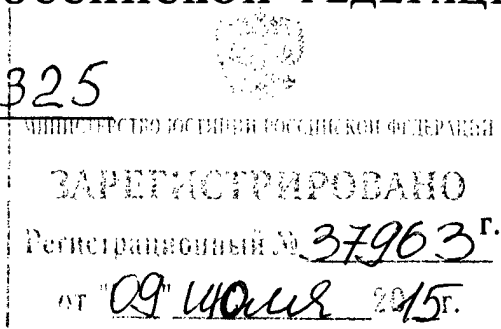 325
МИНИСТЕРСТВО ЮСТИЦИИ РОССИЙСКОЙ ФЕДЕРАЦИИ
ЗАРЕГИСТРИРОВАНО
Регистрационный № 37963
г.
от "09" июля 2015г.